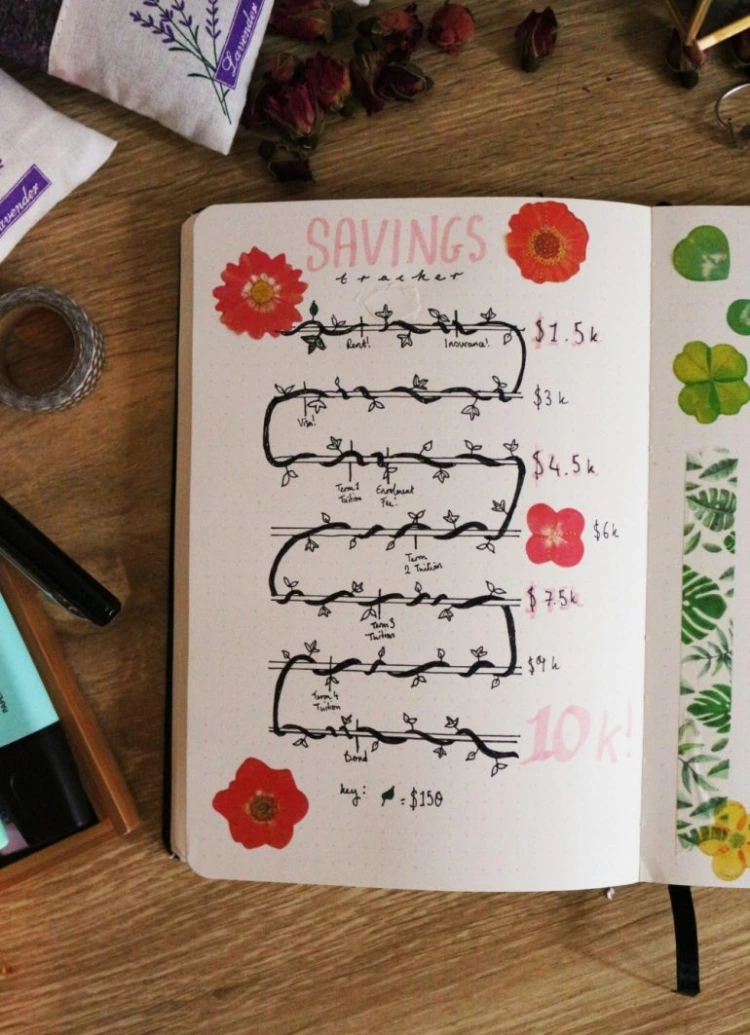 Lavender
Lavender
SAVINGS
tracker
$1.5k
Rent!
Insurance!
$3k
Visa!
$4.5k
Term 1
Tuition
Enrolment
Fee!
$6k
Term
2 Tuition
$7.5k
Term 3
Tuition
$9k
Term 4
Tuition
10k!
Bond
key: = $150